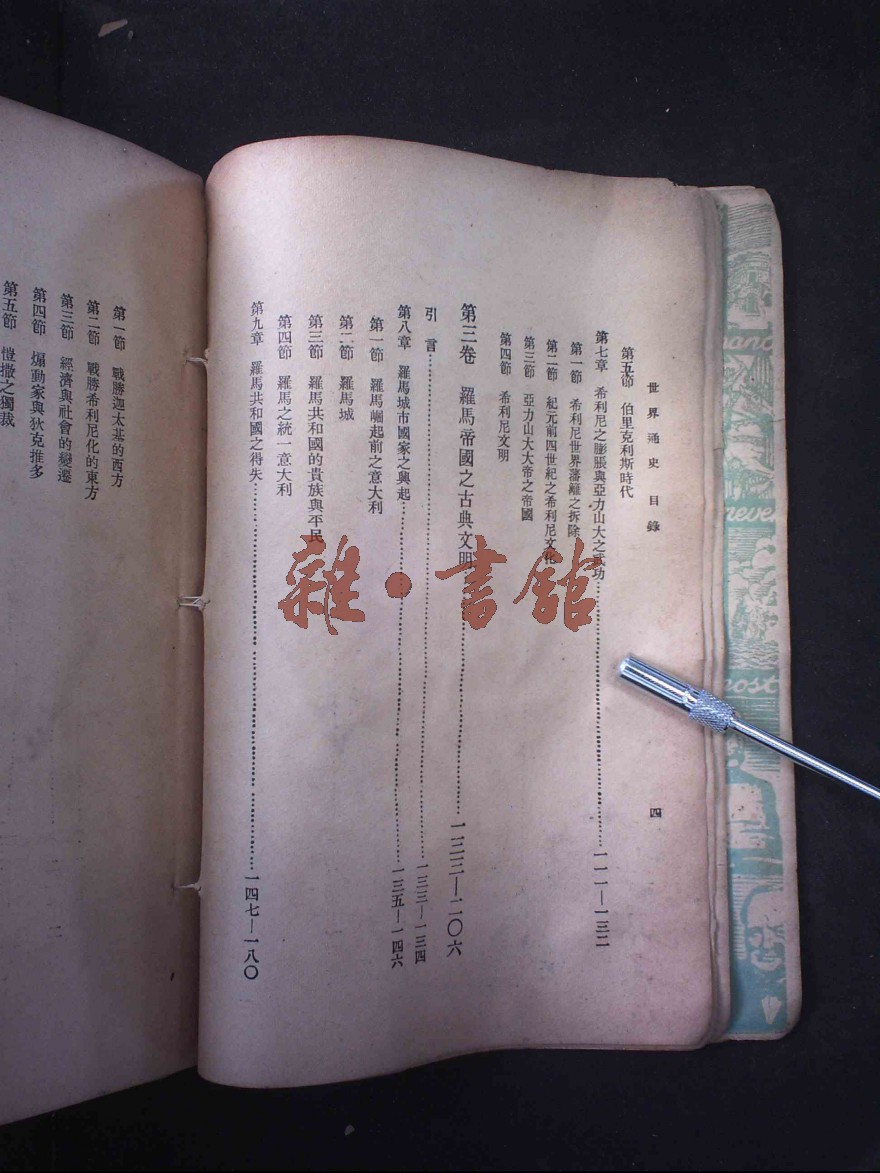 世界通史 目錄
四
第五節 伯里克利斯時代
第七章 希利尼之膨脹與亞力山大之武功……一一一—一三二
第一節 希利尼世界藩籬之拆除
第二節 紀元前四世紀之希利尼文化
第三節 亞力山大大帝之帝國
第四節 希利尼文明
第三卷 羅馬帝國之古典文明……一三三—二〇六
引言……一三三—一三四
第八章 羅馬城市國家之興起……一三五—一四六
第一節 羅馬崛起前之意大利
第二節 羅馬城
第三節 羅馬共和國的貴族與平民
第四節 羅馬之統一意大利
第九章 羅馬共和國之得失……一四七—一八〇
第一節 戰勝迦太基的西方
第二節 戰勝希利尼化的東方
第三節 經濟與社會的變遷
第四節 煽動家與狄克推多
第五節 愷撒之獨裁
雜·書館
and
never
most